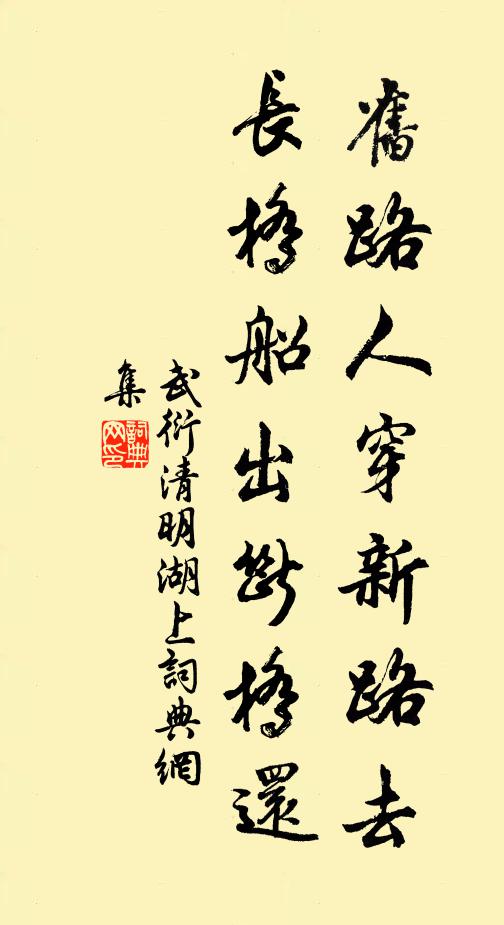 舊路人穿新路去
長橋船出斷橋還
武衍清明湖上詞典網
集
詞典
网印